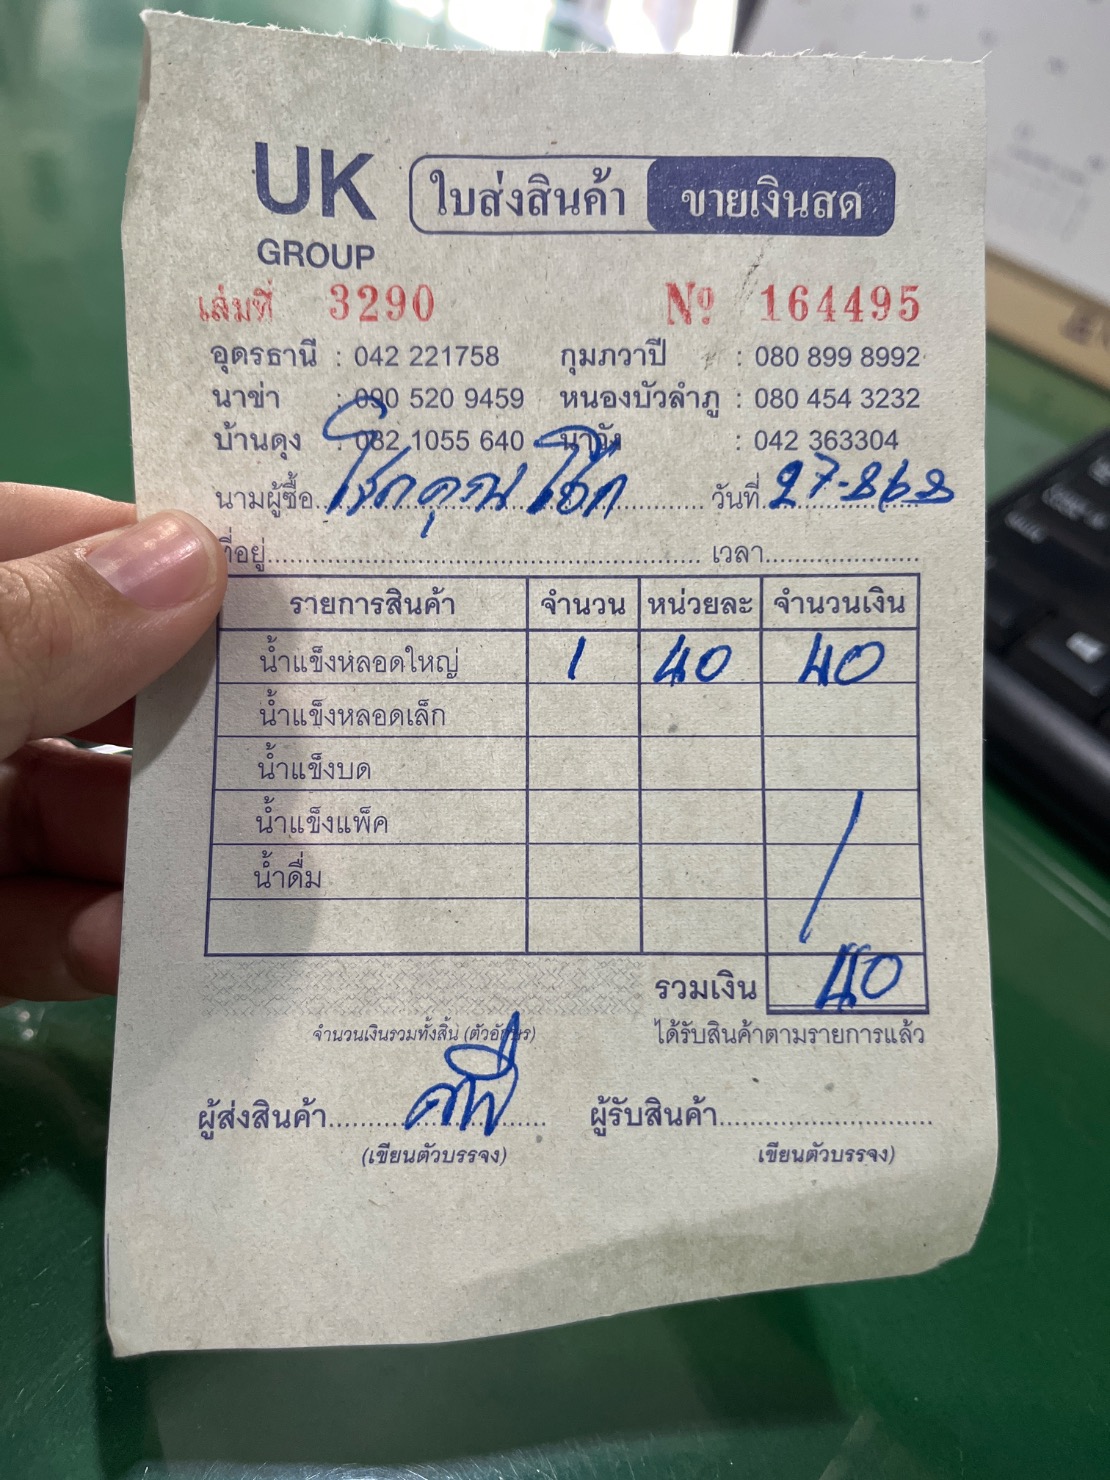 UK
GROUP
ใบส่งสินค้า ขายเงินสด
เล่มที่ 3290 Nº 164495
อุดรธานี : 042 221758 กุมภวาปี : 080 899 8992
นาข่า : 090 520 9459 หนองบัวลำภู : 080 454 3232
บ้านดุง : 082 1055 640 : 042 363304
นามผู้ซื้อ โชคคูณ โชค วันที่ 27-8-68
ที่อยู่ เวลา
รายการสินค้า จำนวน หน่วยละ จำนวนเงิน
น้ำแข็งหลอดใหญ่ 1 40 40
น้ำแข็งหลอดเล็ก
น้ำแข็งบด
น้ำแข็งแพ็ค
น้ำดื่ม
รวมเงิน 40
จำนวนเงินรวมทั้งสิ้น (ตัวอักษร) ได้รับสินค้าตามรายการแล้ว
ผู้ส่งสินค้า ผู้รับสินค้า
(เขียนตัวบรรจง) เขียนตัวบรรจง)